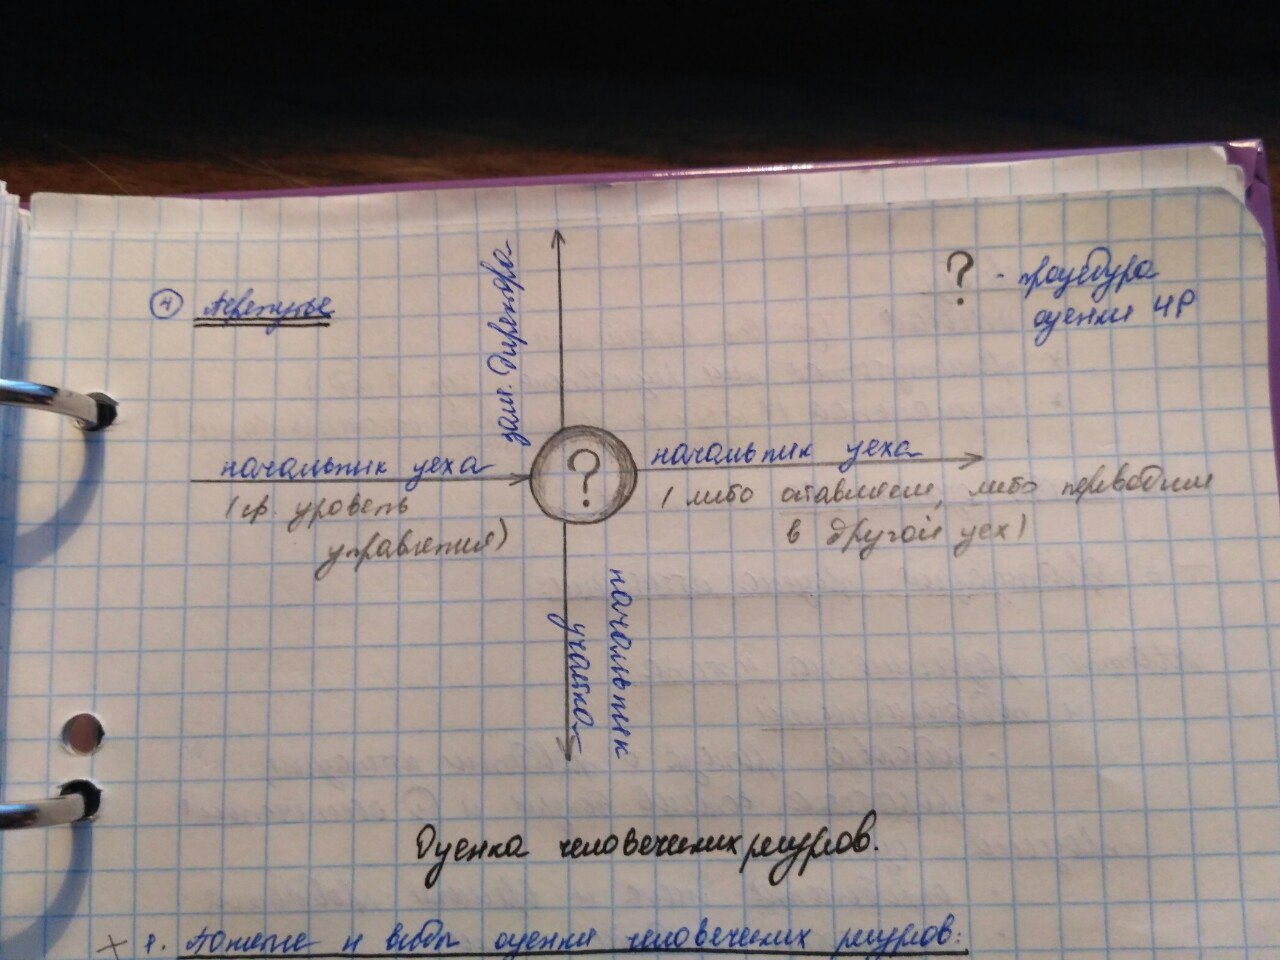 ④ Перепутье
? - процедура
оценки ЧР
зам. директора
начальник цеха
(ср. уровень
управления)
?
начальник цеха
(либо оставляем, либо переводим
в другой цех)
начальник
участка
Оценка человеческих ресурсов.
1. Понятие и виды оценки человеческих ресурсов: